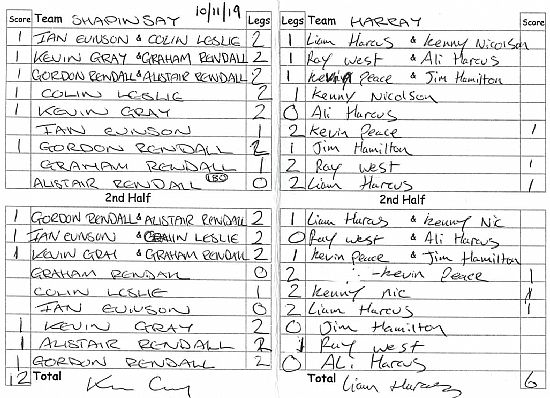 10/11/19
Score Team SHAPINSAY Legs Legs Team HARRAY Score
1 IAN EVINSON & COLIN LESLIE 2 1 Liam Harcus & Kenny Nicolson
1 KEVIN GRAY & GRAHAM RENDALL 2 1 Ray West & Ali Harcus
1 GORDON RENDALL & ALISTAIR RENDALL 2 1 Kevin Peace & Jim Hamilton
1 COLIN LESLIE 2 1 Kenny Nicolson
1 KEVIN GRAY 2 0 Ali Harcus
IAN EVINSON 1 2 Kevin Peace 1
1 GORDON RENDALL 2 1 Jim Hamilton
GRAHAM RENDALL 1 2 Ray West 1
ALISTAIR RENDALL 180 0 2 Liam Harcus 1
2nd Half 2nd Half
1 GORDON RENDALL & ALISTAIR RENDALL 2 1 Liam Harcus & Kenny Nic
1 IAN EVINSON & COLIN LESLIE 2 0 Ray West & Ali Harcus
1 KEVIN GRAY & GRAHAM RENDALL 2 1 Kevin Peace & Jim Hamilton
GRAHAM RENDALL 0 2 Kevin Peace 1
COLIN LESLIE 1 2 Kenny Nic 1
IAN EVINSON 0 2 Liam Harcus 1
1 KEVIN GRAY 2 0 Jim Hamilton
1 ALISTAIR RENDALL 2 1 Ray West
1 GORDON RENDALL 2 0 Ali Harcus
12 Total Total Liam Harcus 6